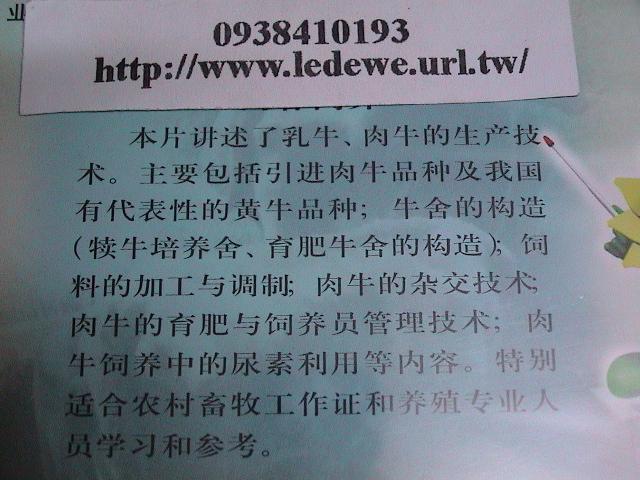 业
0938410193
http://www.ledewe.url.tw/
本片讲述了乳牛、肉牛的生产技
术。主要包括引进肉牛品种及我国
有代表性的黄牛品种；牛舍的构造
（犊牛培养舍、育肥牛舍的构造）；饲
料的加工与调制；肉牛的杂交技术；
肉牛的育肥与饲养员管理技术；肉
牛饲养中的尿素利用等内容。特别
适合农村畜牧工作证和养殖专业人
员学习和参考。